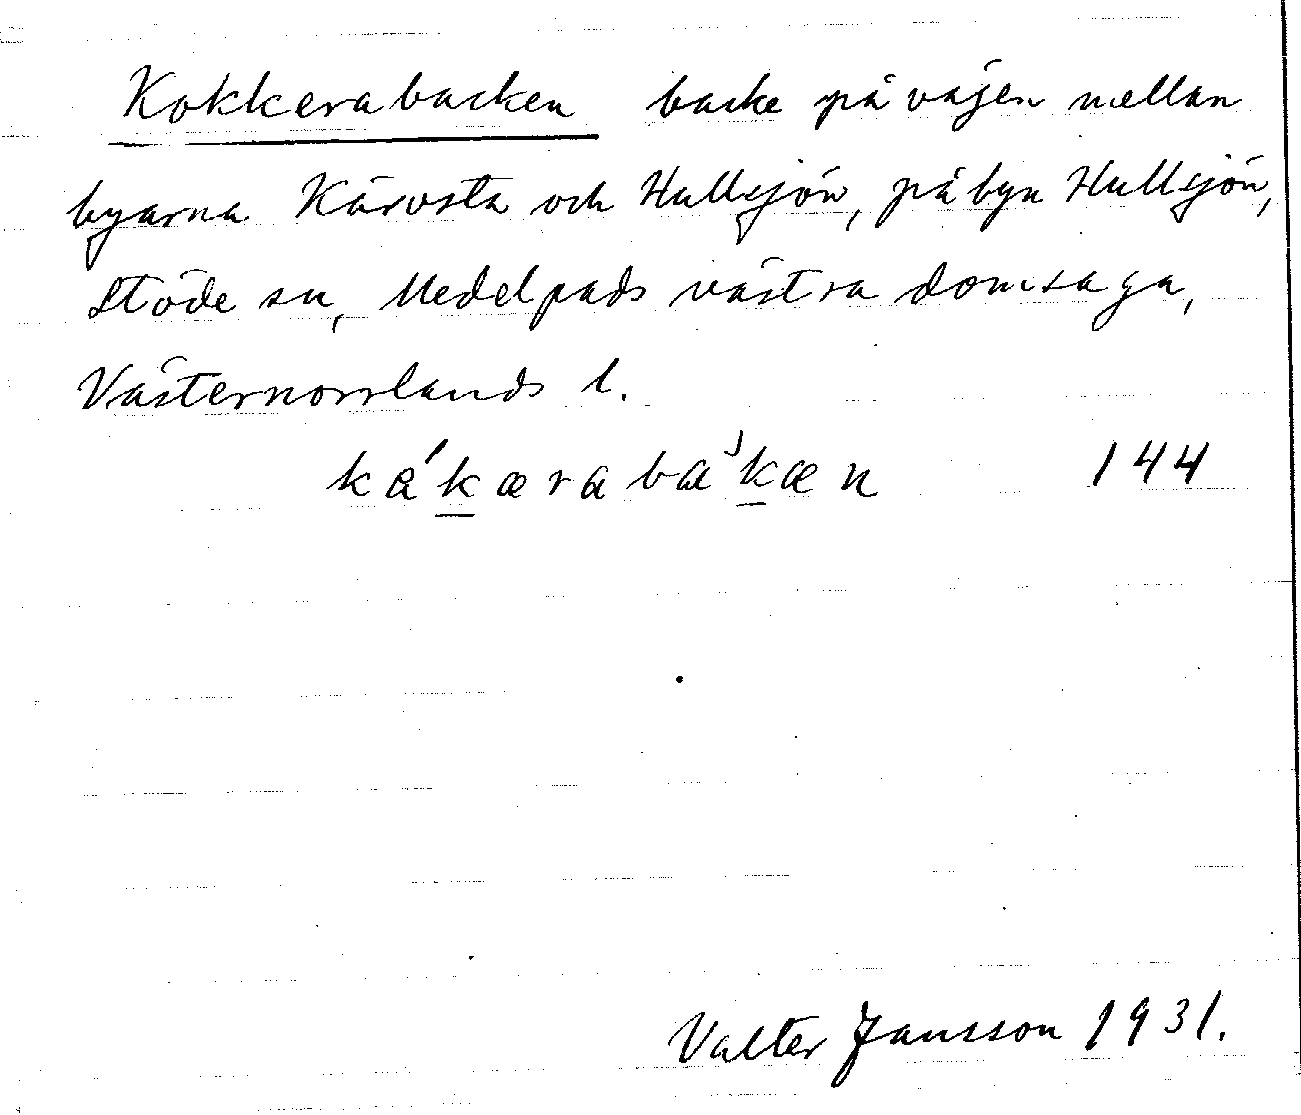 Kokkerabacken backe på vägen mellan
byarna Kärvsta och Hullsjön, på byn Hullsjön,
Stöde sn, Medelpads västra domsaga,
Västernorrlands l.
ka ́kæraba ̀kæn 144
Valter Jansson 1931.